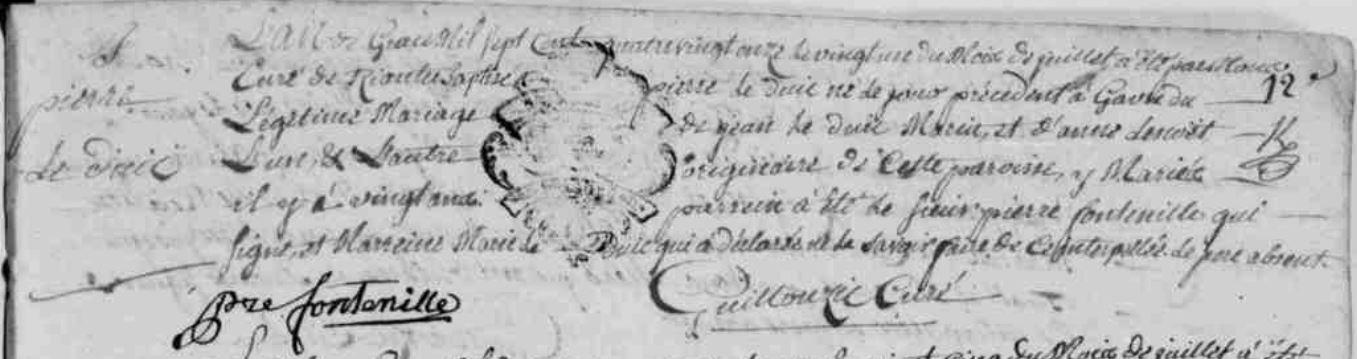 L'an de Grace Mil sept Cents quatrevingt onze le vingt une du Mois de juillet à été par Nous
pierre
Curé de Riantec baptisé pierre le Duic né le jour précédent à Gavre du
12
Légitime Mariage de jean le Duic Marin, et d'anne
le Duic
L'un & L'autre originaire de Cette paroisse, y Mariés
il y a vingt ans. parrein à été le sieur pierre fontenille qui
signe, et Marreine Marie le Duic qui a déclaré ne le savoir faire de ce interpellée. le pere absent.
pre fontenille
Guillouzic Curé
du Mois de juillet à été